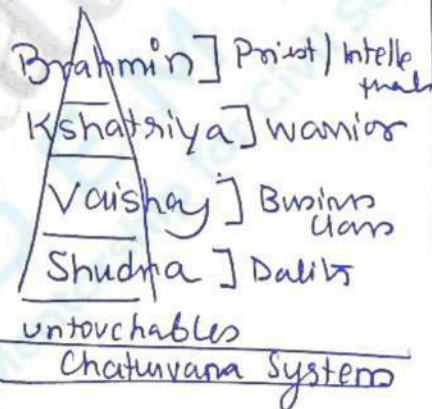 Brahmin] Priest / Intelle
ctuals
Kshatriya] Warrior
Vaishay] Business
Class
Shudra] Dalits
untouchables
Chaturvarna System